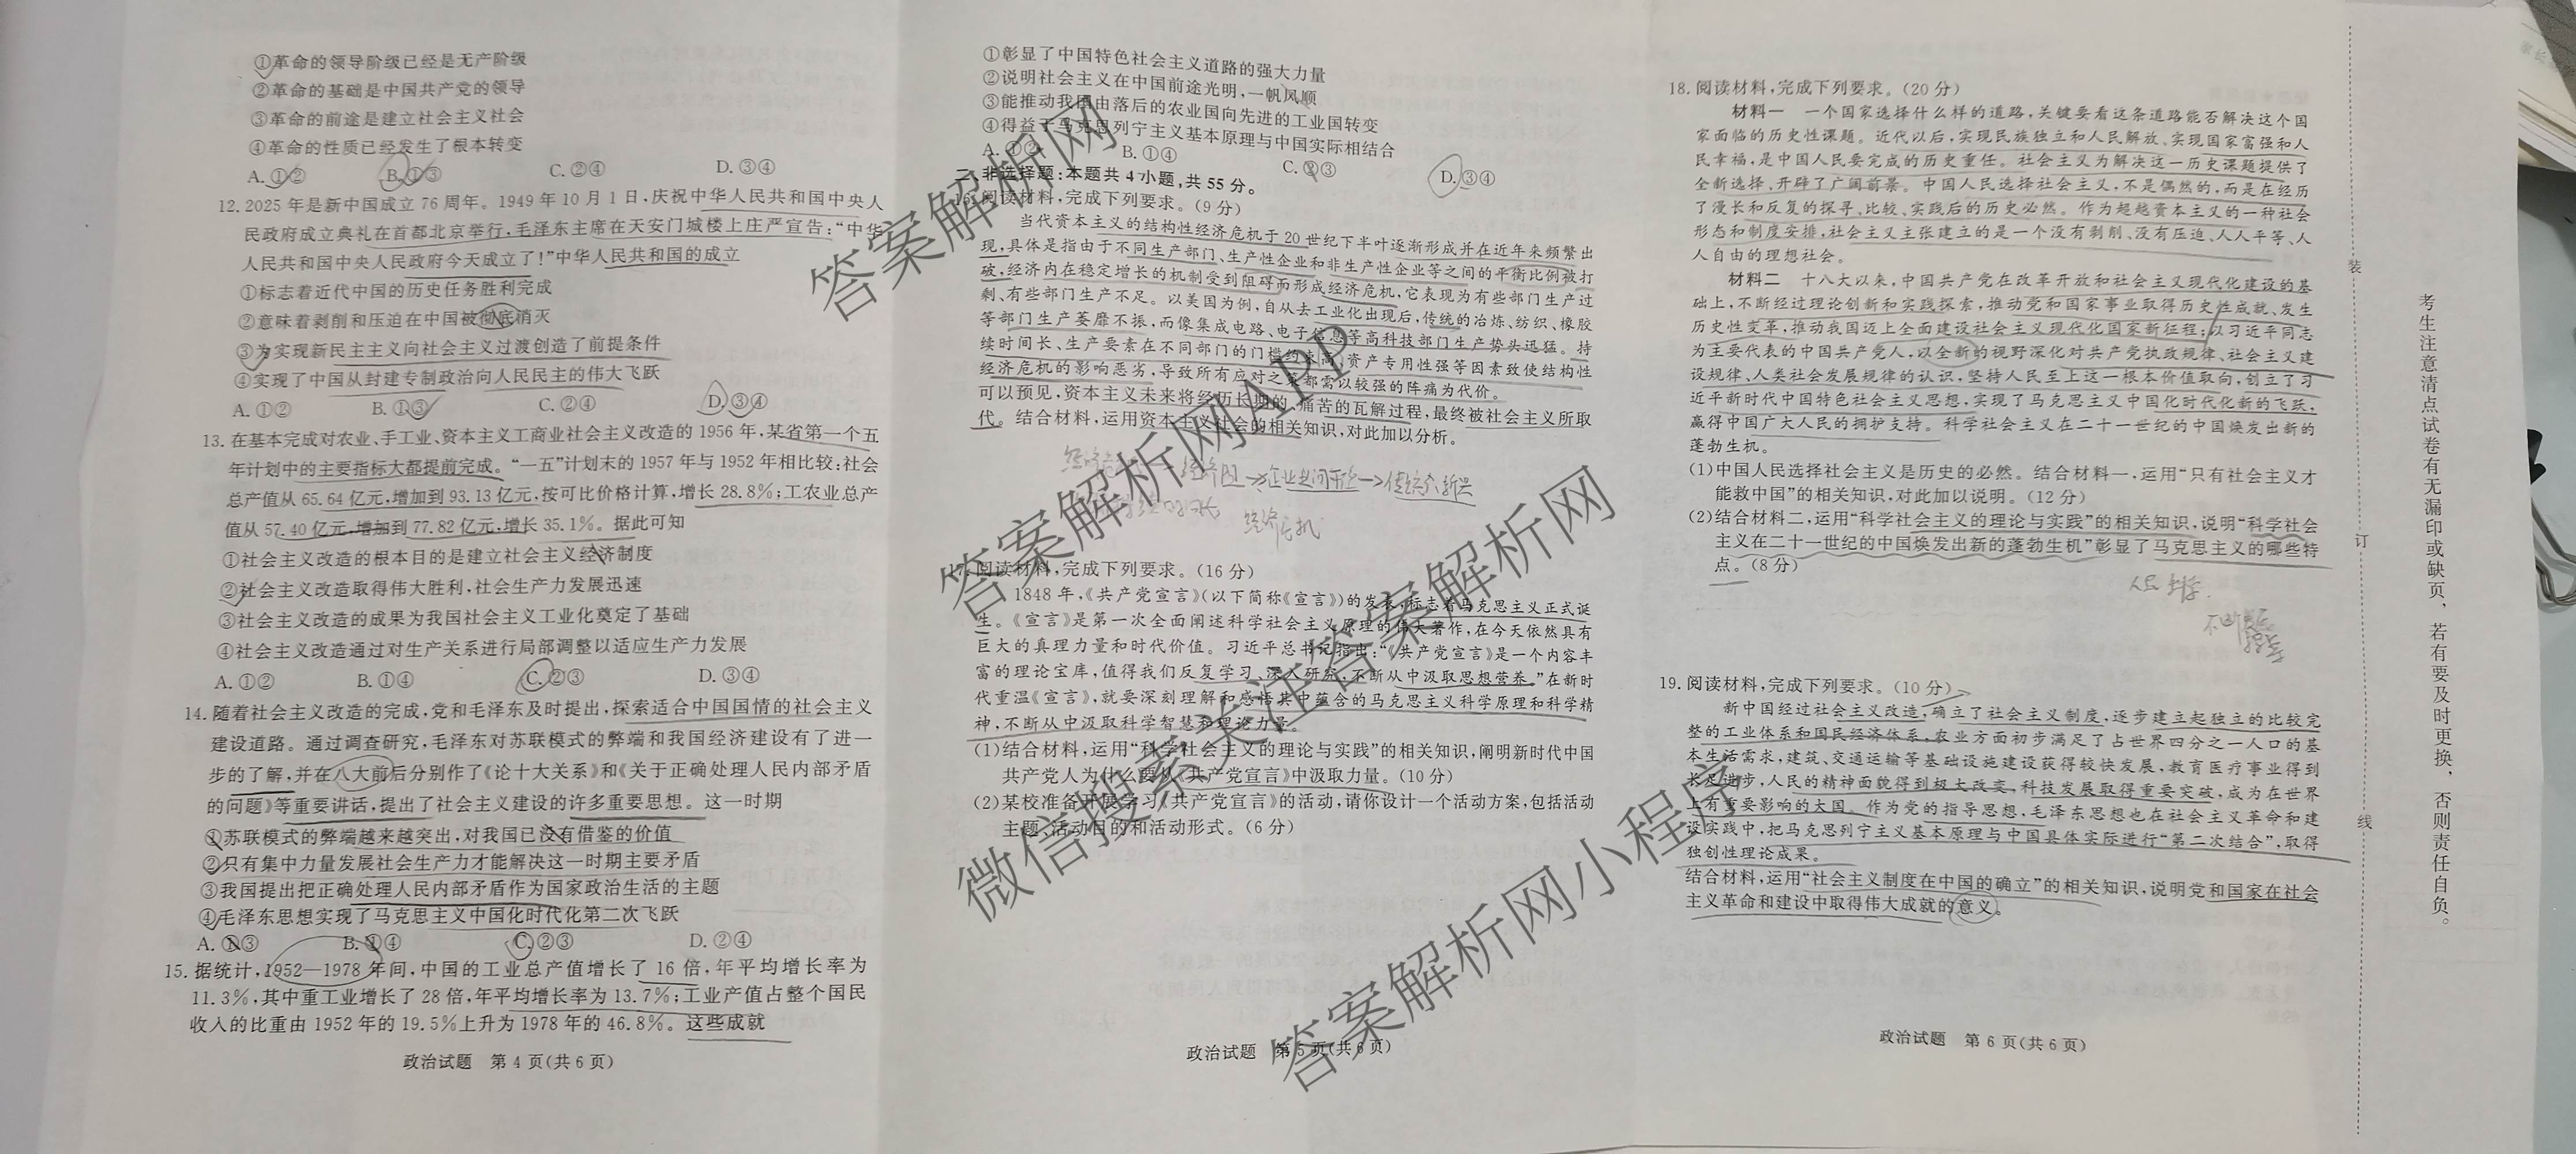 ①革命的领导阶级已经是无产阶级
②革命的基础是中国共产党的领导
③革命的前途是建立社会主义社会
④革命的性质已经发生了根本转变
A. ①② B. ①③ C. ②④ D. ③④
12. 2025 年是新中国成立 76 周年。1949 年 10 月 1 日,庆祝中华人民共和国中央人
民政府成立典礼在首都北京举行,毛泽东主席在天安门城楼上庄严宣告:“中华
人民共和国中央人民政府今天成立了!”中华人民共和国的成立
①标志着近代中国的历史任务胜利完成
②意味着剥削和压迫在中国被彻底消灭
③为实现新民主主义向社会主义过渡创造了前提条件
④实现了中国从封建专制政治向人民民主的伟大飞跃
A. ①② B. ①③ C. ②④ D. ③④
13. 在基本完成对农业、手工业、资本主义工商业社会主义改造的 1956 年,某省第一个五
年计划中的主要指标大都提前完成。“一五”计划末的 1957 年与 1952 年相比较:社会
总产值从 65.64 亿元,增加到 93.13 亿元,按可比价格计算,增长 28.8%;工农业总产
值从 57.40 亿元,增加到 77.82 亿元,增长 35.1%。据此可知
①社会主义改造的根本目的是建立社会主义经济制度
②社会主义改造取得伟大胜利,社会生产力发展迅速
③社会主义改造的成果为我国社会主义工业化奠定了基础
④社会主义改造通过对生产关系进行局部调整以适应生产力发展
A. ①② B. ①④ C. ②③ D. ③④
14. 随着社会主义改造的完成,党和毛泽东及时提出,探索适合中国国情的社会主义
建设道路。通过调查研究,毛泽东对苏联模式的弊端和我国经济建设有了进一
步的了解,并在八大前后分别作了《论十大关系》和《关于正确处理人民内部矛盾
的问题》等重要讲话,提出了社会主义建设的许多重要思想。这一时期
①苏联模式的弊端越来越突出,对我国已没有借鉴的价值
②只有集中力量发展社会生产力才能解决这一时期主要矛盾
③我国提出把正确处理人民内部矛盾作为国家政治生活的主题
④毛泽东思想实现了马克思主义中国化时代化第二次飞跃
A. ①③ B. ①④ C. ②③ D. ②④
15. 据统计,1952—1978 年间,中国的工业总产值增长了 16 倍,年平均增长率为
11.3%,其中重工业增长了 28 倍,年平均增长率为 13.7%;工业产值占整个国民
收入的比重由 1952 年的 19.5%上升为 1978 年的 46.8%。这些成就
政治试题 第 4 页(共 6 页)
①彰显了中国特色社会主义道路的强大力量
②说明社会主义在中国前途光明,一帆风顺
③能推动我国由落后的农业国向先进的工业国转变
④得益于马克思列宁主义基本原理与中国实际相结合
A. ①② B. ①④ C. ②③ D. ③④
二、非选择题:本题共 4 小题,共 55 分。
16. 阅读材料,完成下列要求。(9 分)
当代资本主义的结构性经济危机于 20 世纪下半叶逐渐形成并在近年来频繁出
现,具体是指由于不同生产部门、生产性企业和非生产性企业等之间的平衡比例被打
破,经济内在稳定增长的机制受到阻碍而形成经济危机,它表现为有些部门生产过
剩、有些部门生产不足。以美国为例,自从去工业化出现后,传统的冶炼、纺织、橡胶
等部门生产萎靡不振,而像集成电路、电子信息等高科技部门生产势头迅猛。持
续时间长、生产要素在不同部门的门槛约束高、资产专用性强等因素致使结构性
经济危机的影响恶劣,导致所有应对之策都需以较强的阵痛为代价。
可以预见,资本主义未来将经历长期的、痛苦的瓦解过程,最终被社会主义所取
代。结合材料,运用资本主义社会的相关知识,对此加以分析。
经济危机
17. 阅读材料,完成下列要求。(16 分)
1848 年,《共产党宣言》(以下简称《宣言》)的发表,标志着马克思主义正式诞
生。《宣言》是第一次全面阐述科学社会主义原理的伟大著作,在今天依然具有
巨大的真理力量和时代价值。习近平总书记指出:“《共产党宣言》是一个内容丰
富的理论宝库,值得我们反复学习、深入研究,不断从中汲取思想营养。”在新时
代重温《宣言》,就要深刻理解和感悟其中蕴含的马克思主义科学原理和科学精
神,不断从中汲取科学智慧和理论力量。
(1)结合材料,运用“科学社会主义的理论与实践”的相关知识,阐明新时代中国
共产党人为什么要从《共产党宣言》中汲取力量。(10 分)
(2)某校准备开展学习《共产党宣言》的活动,请你设计一个活动方案,包括活动
主题、活动目的和活动形式。(6 分)
政治试题 第 5 页(共 6 页)
18. 阅读材料,完成下列要求。(20 分)
材料一 一个国家选择什么样的道路,关键要看这条道路能否解决这个国
家面临的历史性课题。近代以后,实现民族独立和人民解放、实现国家富强和人
民幸福,是中国人民要完成的历史重任。社会主义为解决这一历史课题提供了
全新选择、开辟了广阔前景。中国人民选择社会主义,不是偶然的,而是在经历
了漫长和反复的探寻、比较、实践后的历史必然。作为超越资本主义的一种社会
形态和制度安排,社会主义主张建立的是一个没有剥削、没有压迫、人人平等、人
人自由的理想社会。
材料二 十八大以来,中国共产党在改革开放和社会主义现代化建设的基
础上,不断经过理论创新和实践探索,推动党和国家事业取得历史性成就、发生
历史性变革,推动我国迈上全面建设社会主义现代化国家新征程;以习近平同志
为主要代表的中国共产党人,以全新的视野深化对共产党执政规律、社会主义建
设规律、人类社会发展规律的认识,坚持人民至上这一根本价值取向,创立了习
近平新时代中国特色社会主义思想,实现了马克思主义中国化时代化新的飞跃,
赢得中国广大人民的拥护支持。科学社会主义在二十一世纪的中国焕发出新的
蓬勃生机。
(1)中国人民选择社会主义是历史的必然。结合材料一,运用“只有社会主义才
能救中国”的相关知识,对此加以说明。(12 分)
(2)结合材料二,运用“科学社会主义的理论与实践”的相关知识,说明“科学社会
主义在二十一世纪的中国焕发出新的蓬勃生机”彰显了马克思主义的哪些特
点。(8 分)
人民 科学
19. 阅读材料,完成下列要求。(10 分)
新中国经过社会主义改造,确立了社会主义制度,逐步建立起独立的比较完
整的工业体系和国民经济体系,农业方面初步满足了占世界四分之一人口的基
本生活需求,建筑、交通运输等基础设施建设获得较快发展,教育医疗事业得到
长足进步,人民的精神面貌得到极大改变,科技发展取得重要突破,成为在世界
上有重要影响的大国。作为党的指导思想,毛泽东思想也在社会主义革命和建
设实践中,把马克思列宁主义基本原理与中国具体实际进行“第二次结合”,取得
独创性理论成果。
结合材料,运用“社会主义制度在中国的确立”的相关知识,说明党和国家在社会
主义革命和建设中取得伟大成就的意义。
政治试题 第 6 页(共 6 页)
装
订
线
考生注意清点试卷有无漏印或缺页,若有要及时更换,否则责任自负。
答案解析网
答案解析网APP
微信搜索关注答案解析网
答案解析网小程序